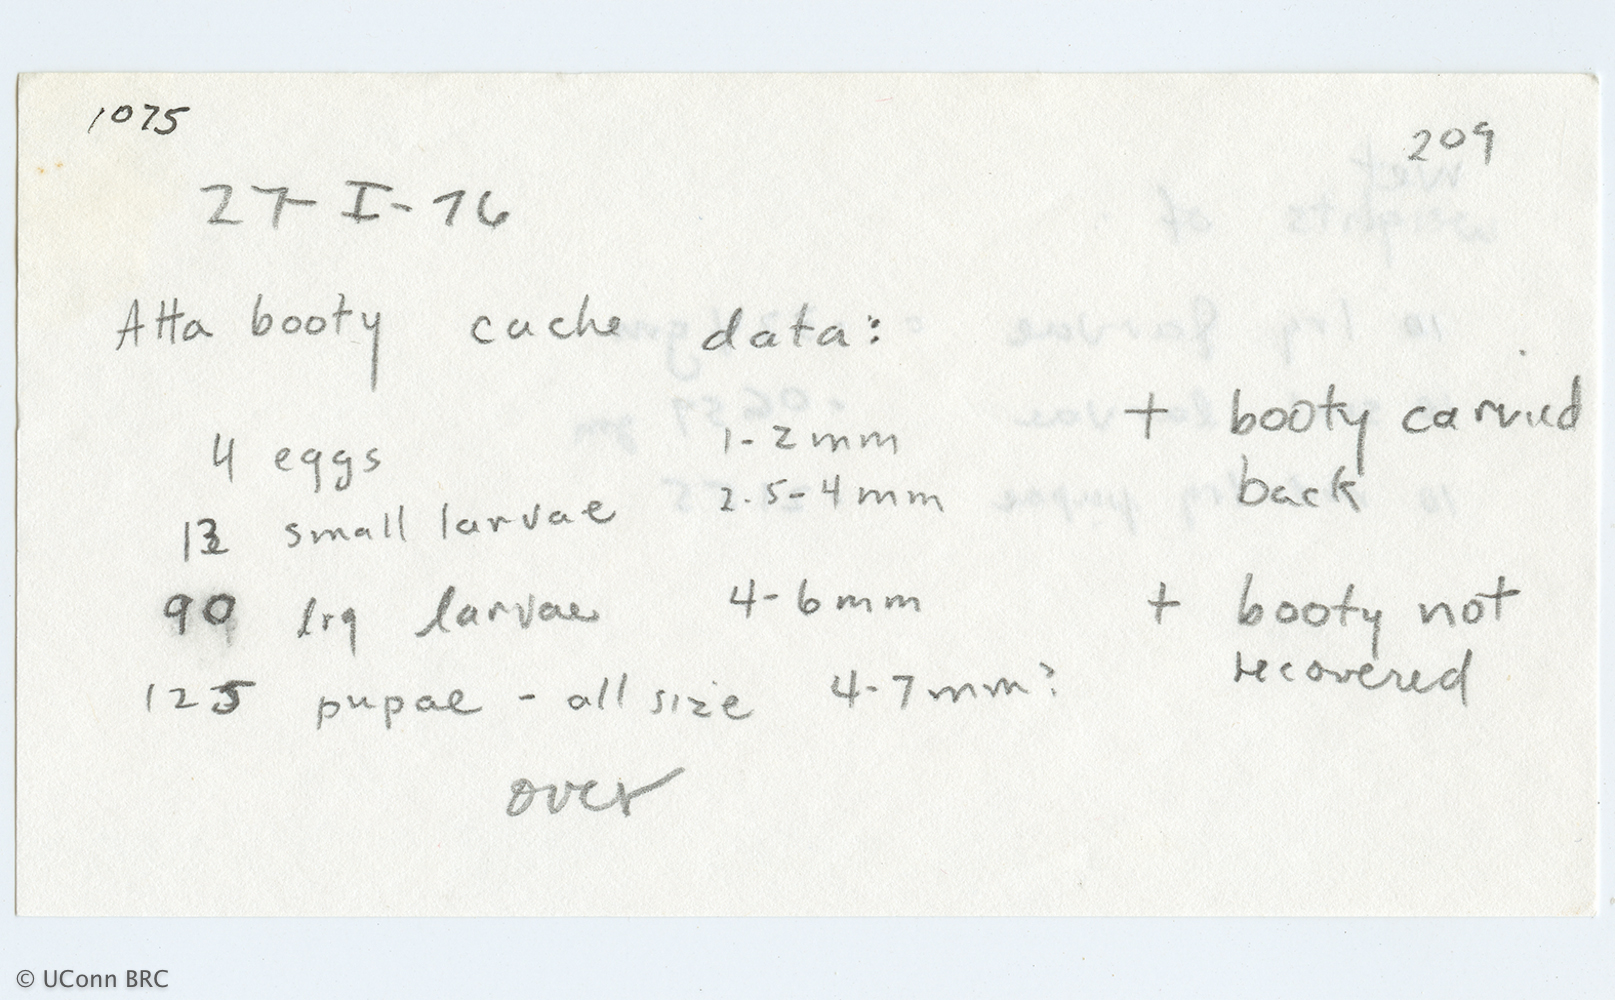 1075
209
27-I-76
Atta booty cache data:
4 eggs 1-2mm
13 small larvae 2.5-4mm
+ booty carried
back
90 lrg larvae 4-6mm
+ booty not
recovered
125 pupae - all size 4-7mm?
over
© UConn BRC